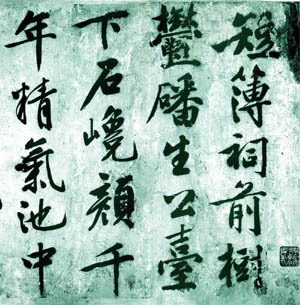 短薄祠前樹
鬱磻生公臺
下石巉顏千
年精氣池中